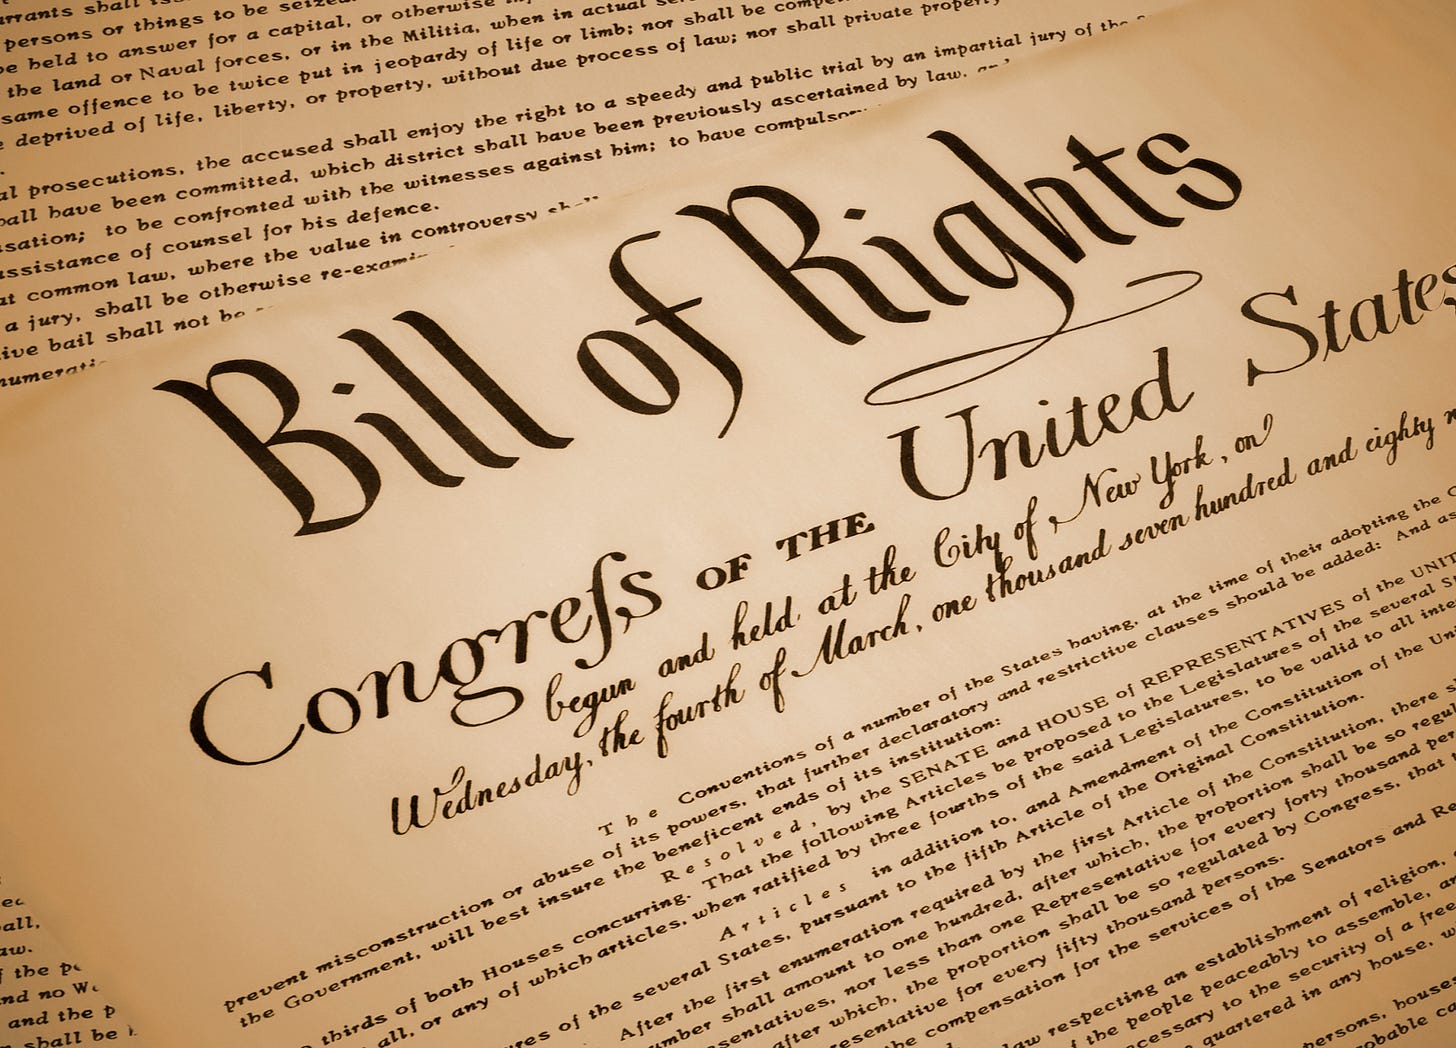 arrants shall
persons or things to be seized
be held to answer for a capital, or otherwise
the land or Naval forces, or in the Militia, when in actual
same offence to be twice put in jeopardy of life or limb; nor shall be
deprived of life, liberty, or property, without due process of law; nor shall private property
al prosecutions, the accused shall enjoy the right to a speedy and public trial by an impartial jury of the
hall have been committed, which district shall have been previously ascertained by law, and
usation; to be confronted with the witnesses against him; to have compulso
assistance of counsel for his defence.
at common law, where the value in controversy shall
a jury, shall be otherwise re-exami
ive bail shall not be
numerati
Bill of Rights
Congreſs OF THE United States
begun and held at the City of New York, on
Wednesday, the fourth of March, one thousand seven hundred and eighty n
The Conventions of a number of the States having, at the time of their adopting the C
prevent misconstruction or abuse of its powers, that further declaratory and restrictive clauses should be added: And as
the Government, will best insure the beneficent ends of its institution:
Resolved, by the SENATE and HOUSE of REPRESENTATIVES of the UNIT
thirds of both Houses concurring. That the following Articles be proposed to the Legislatures of the several S
all, or any of which articles, when ratified by three fourths of the said Legislatures, to be valid to all inte
Articles in addition to, and Amendment of the Constitution of the Uni
res of the several States, pursuant to the fifth Article of the Original Constitution.
After the first enumeration required by the first Article of the Constitution, there s
umber shall amount to one hundred, after which, the proportion shall be so regul
sentatives, nor less than one Representative for every forty thousand per
after which, the proportion shall be so regulated by Congress, that
resentative for every fifty thousand persons.
the compensation for the services of the Senators and Re
law respecting an establishment of religion,
of the people peaceably to assemble, an
cessary to the security of a free
quartered in any house, w
persons, house
obable ca
all,
aw.
f the pe
nd no Wa
and the p
n shall be